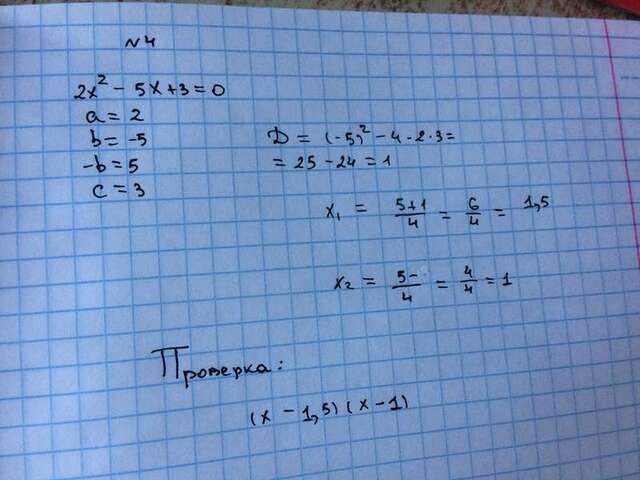 №4
2x² - 5x + 3 = 0
a = 2
b = -5
-b = 5
c = 3
D = (-5)² - 4 · 2 · 3 =
= 25 - 24 = 1
x₁ = 5+1/4 = 6/4 = 1,5
x₂ = 5-/4 = 4/4 = 1
Проверка:
(x - 1,5) (x - 1)